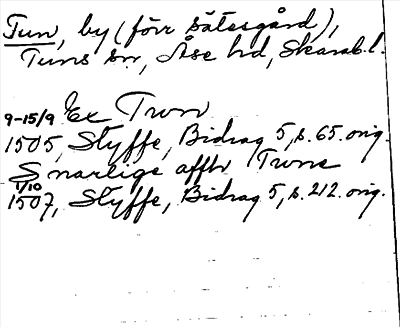 Tun, by (förr sätesgård),
Tuns sn, Åse hd, Skarab. l.
9-15/9 Ex Twn
1505, Styffe, Bidrag 5, s. 65. orig.
Snarlige affth Twne
1/10
1507, Styffe, Bidrag 5, s. 212. orig.